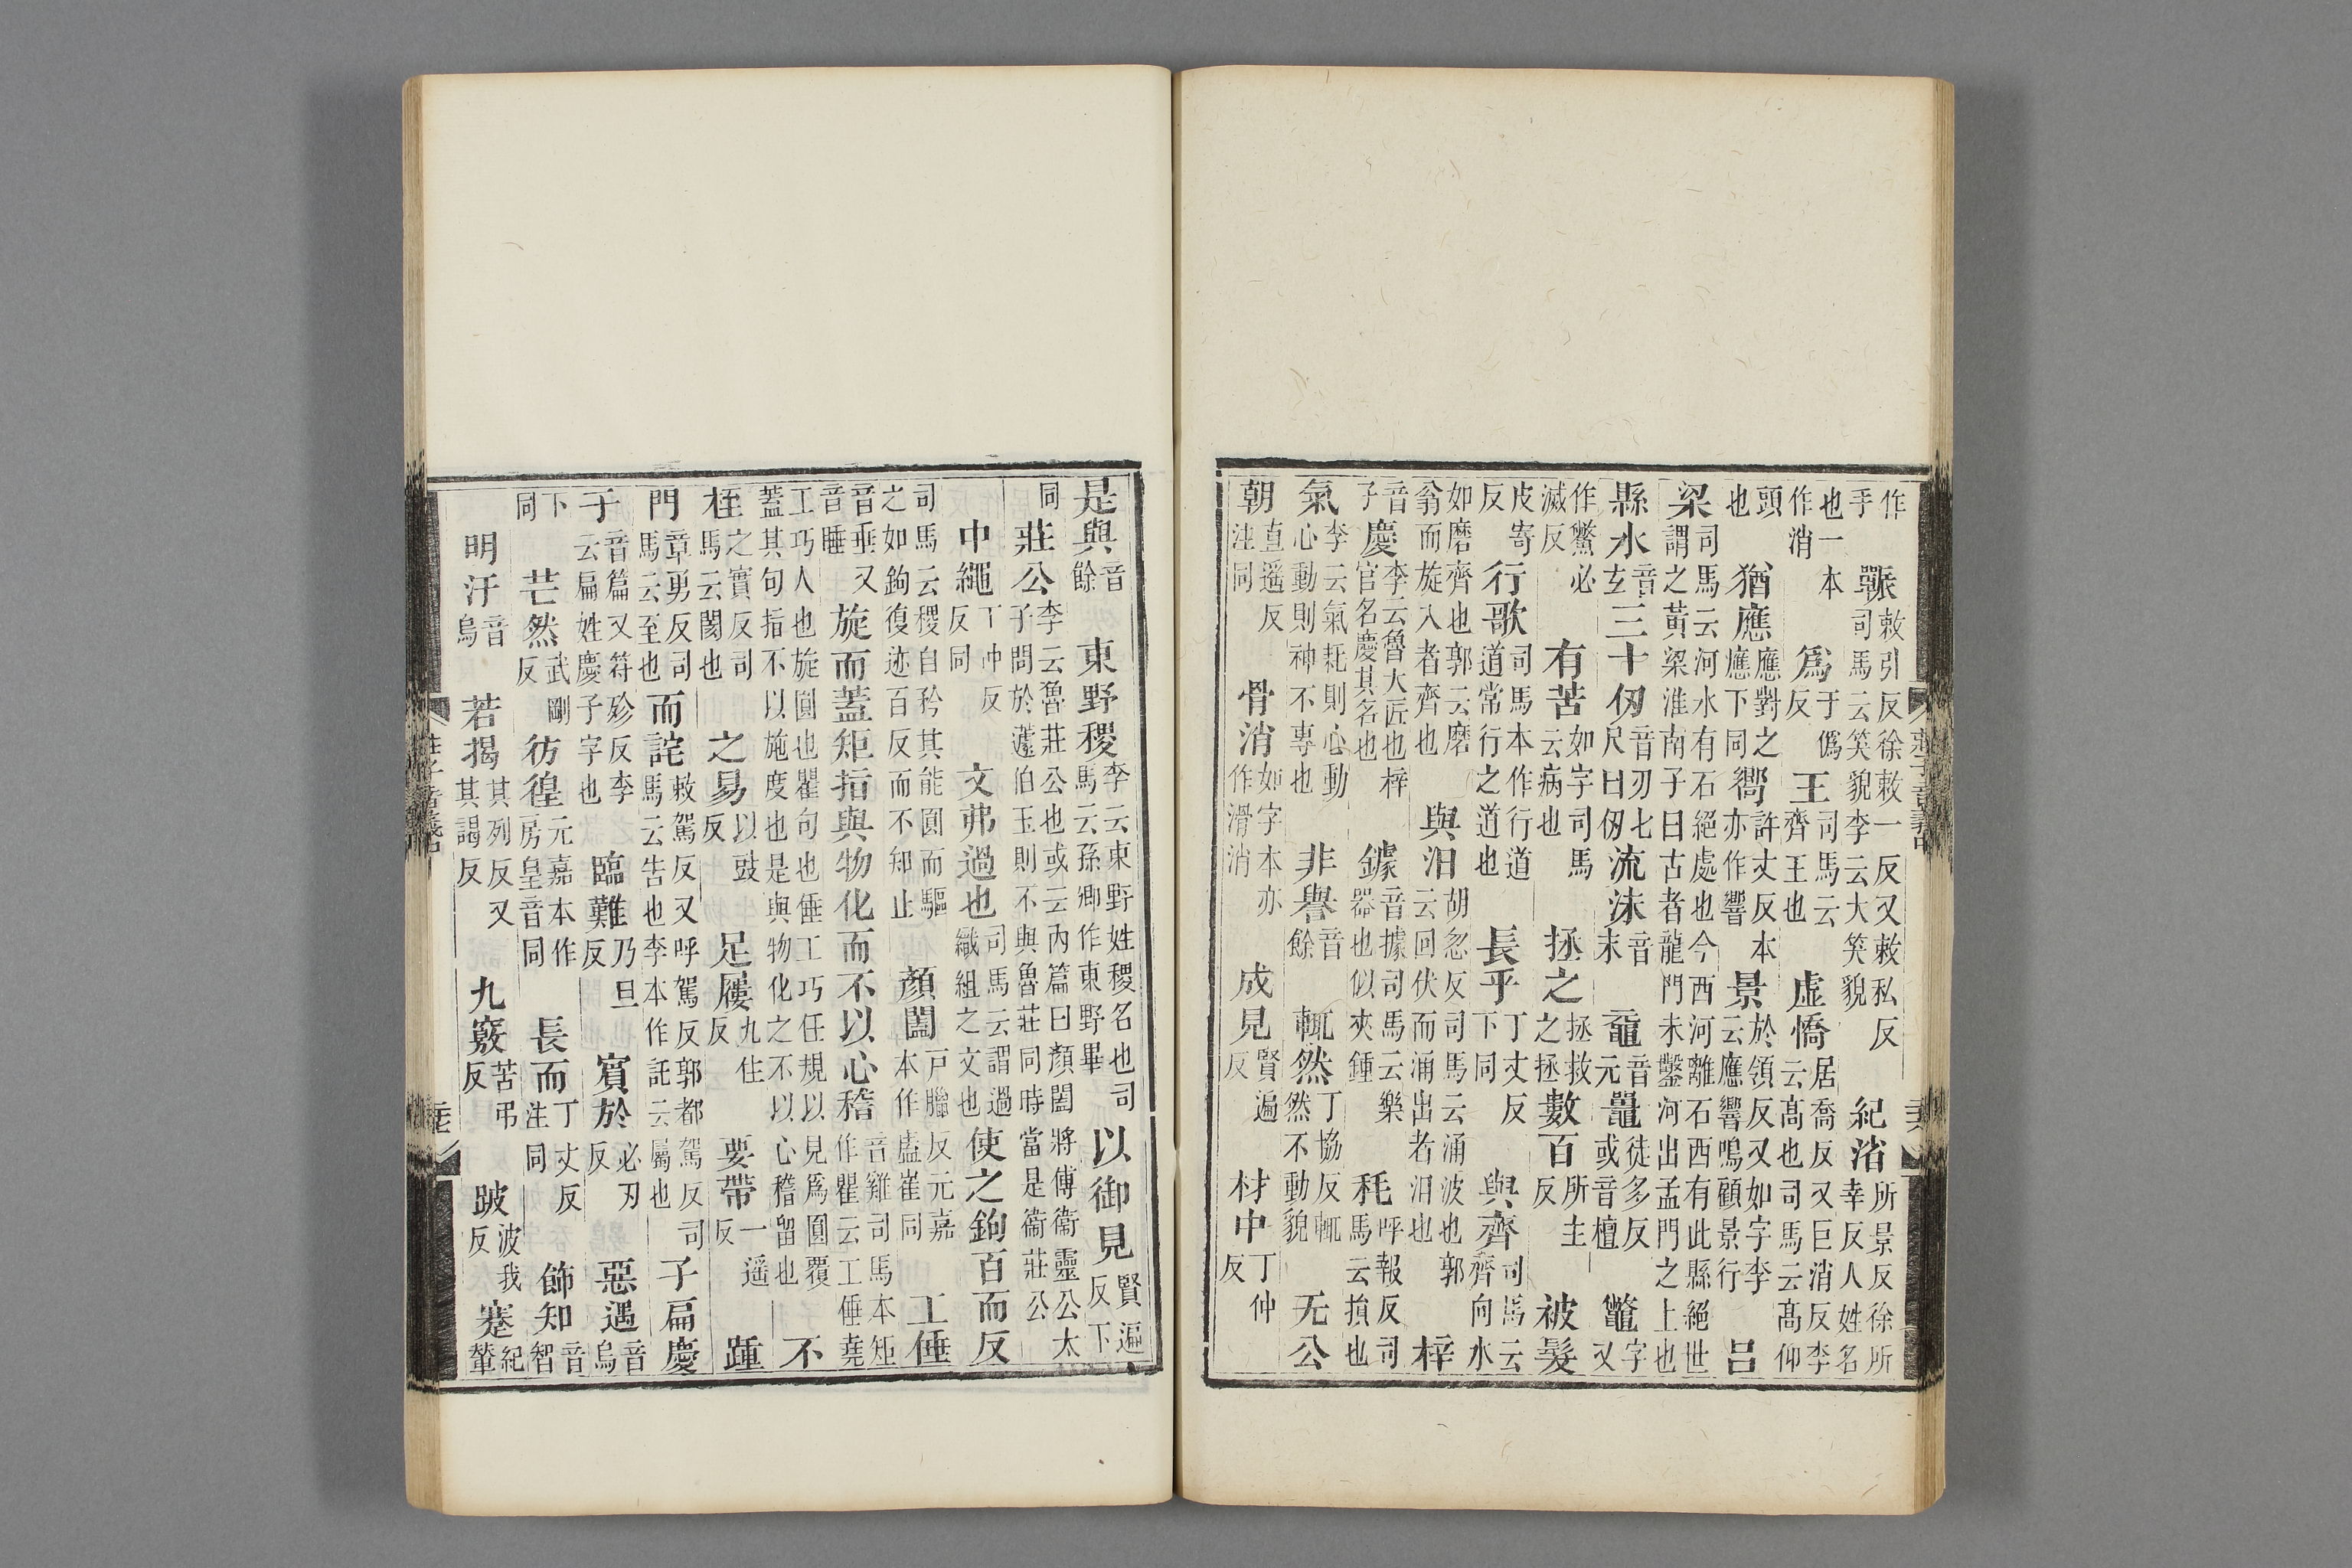 作乎辴敕引反徐敕一反又敕私反司馬云笑貌李云大笑貌紀渻所景反徐所幸反人姓名
也一本作消爲于僞反王司馬云齊王也虛憍居喬反又巨消反李云髙也司馬云髙仰
頭也猶應應對之應下同嚮許丈反本亦作響景於領反又如字李云應響鳴顧景行呂
梁司馬云河水有石絕處也今西河離石西有此縣絕世謂之黃梁淮南子曰古者龍門未鑿河出孟門之上也
縣水音玄三十仞音刃七尺曰仞流沫音末黿音元鼉徒多反或音檀鼈字又
作鱉必滅反有苦如字司馬云病也拯之拯救之拯數百所主反被髮
皮寄反行歌司馬本作行道道常行之道也長乎丁丈反下同與齊司馬云齊向水
如磨齊也郭云磨翁而旋入者齊也與汩胡忽反司馬云涌波也郭云回伏而涌出者汩也梓
音子慶李云魯大匠也梓官名慶其名也鐻音據司馬云樂器也似夾鍾秏呼報反司馬云損也
氣李云氣耗則心動心動則神不專也非譽音餘輒然丁協反輒然不動貌无公
朝直遥反注同骨消如字本亦作滑消成見賢遍反材中丁仲反
是與音餘東野稷李云東野姓稷名也司馬云孫卿作東野畢以御見賢遍反下
同莊公李云魯莊公也或云內篇曰顏闔將傅衛靈公太子問於蘧伯玉則不與魯莊同時當是衞莊公
中繩丁仲反同文弗過也司馬云謂過織組之文也使之鉤百而反
司馬云稷自矜其能圓而驅之如鉤復迹百反而不知止顏闔戶臘反元嘉本作盧崔同工倕
音垂又音睡旋而蓋矩指與物化而不以心稽音雞司馬本矩作瞿云工倕堯
工巧人也旋圓也瞿句也倕工巧任規以見爲圓覆蓋其句指不以施度也是與物化之不以心稽留也不
桎之實反司馬云閡也之易以豉反足屨九住反要帶一遥反踵
門章勇反司馬云至也而詫敕駕反又呼駕反郭都駕反司馬云告也李本作託云屬也子扁慶
子音篇又符殄反李云扁姓慶子字也臨難乃旦反賓於必刃反惡遇音烏
下同芒然武剛反彷徨元嘉本作房皇音同長而丁丈反注同飾知音智
明汙音烏若揭其列反又其謁反九竅苦弔反跛波我反蹇紀輦